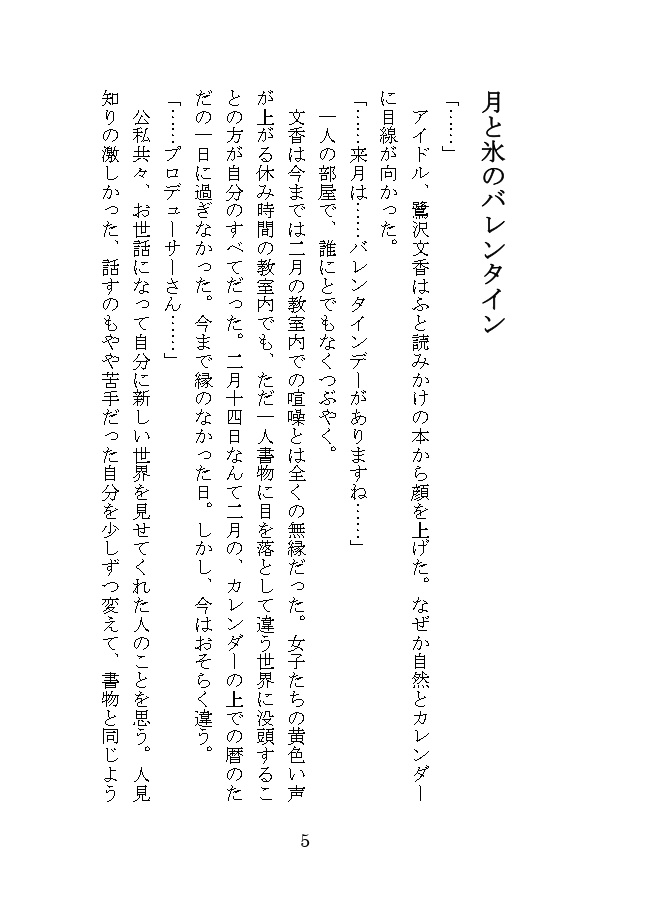 月と氷のバレンタイン
「……」
　アイドル、鷺沢文香はふと読みかけの本から顔を上げた。なぜか自然とカレンダー
に目線が向かった。
「……来月は……バレンタインデーがありますね……」
　一人の部屋で、誰にとでもなくつぶやく。
　文香は今までは二月の教室内での喧噪とは全くの無縁だった。女子たちの黄色い声
が上がる休み時間の教室内でも、ただ一人書物に目を落として違う世界に没頭するこ
との方が自分のすべてだった。二月十四日なんて二月の、カレンダーの上での暦のた
だの一日に過ぎなかった。今まで縁のなかった日。しかし、今はおそらく違う。
「……プロデューサーさん……」
　公私共々、お世話になって自分に新しい世界を見せてくれた人のことを思う。人見
知りの激しかった、話すのもやや苦手だった自分を少しずつ変えて、書物と同じよう
5